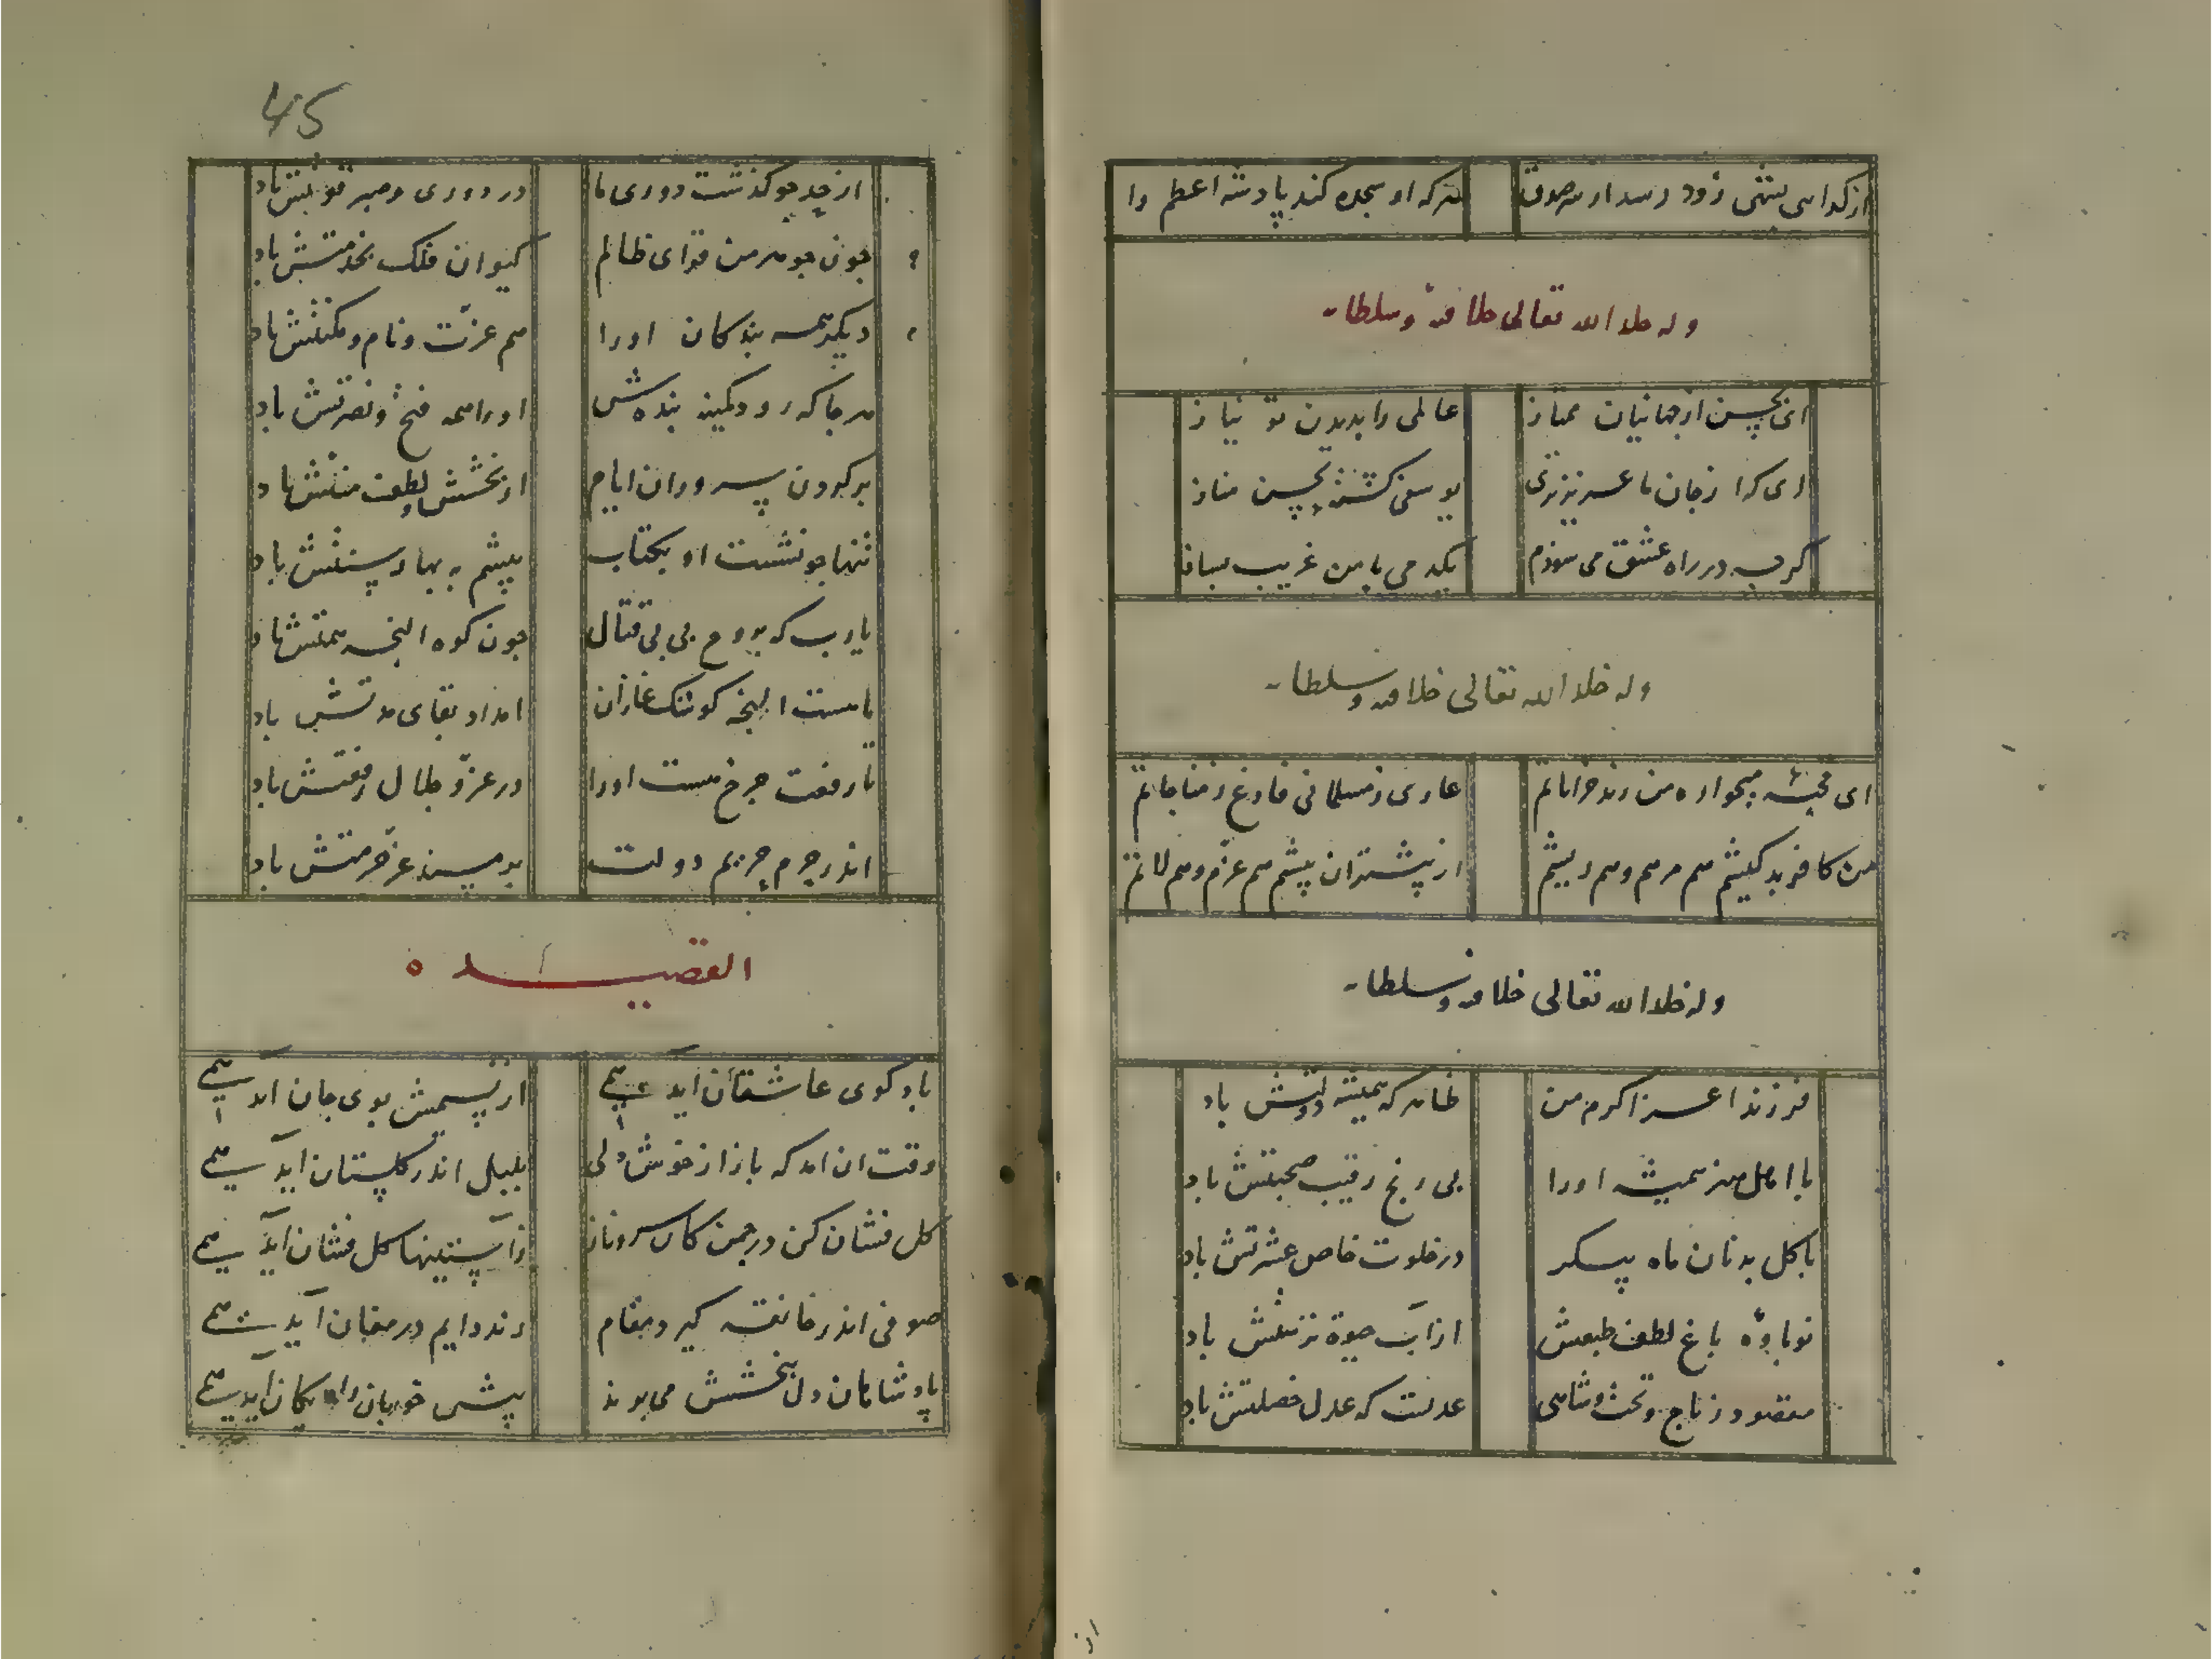 هرکه او سجده کند پادشه اعظم را
وله خلد الله تعالی خلافته وسلطانه
ای بحسن از جهانیان ممتاز عالمی را بدیدن تو نیاز
ای که از جان ما عزیزتری یوسفی کشته بحسن مناز
کرچه در راه عشق می سوزم یکدمی با من غریب بساز
وله خلد الله تعالی خلافته وسلطانه
ای میخواره من رند خراباتم عاری ز مسلمانی فارغ ز مناجاتم
من کافر بدکیشم هم مرهم وهم ریشم از پیشتران پیشم هم عزم وهم لاتم
وله خلد الله تعالی خلافته وسلطانه
فرزند اعز اکرم من خانه که همیشه دولتش باد
با اهل هنر همیشه اورا بی رنج رقیب صحبتش باد
با کل بدنان ماه پیکر در خلوت خاص عشرتش باد
نوباوهٔ باغ لطف طبعش از آب حیوة نزهتش باد
مقصود ز تاج و تخت وشاهی عدلست که عدل خصلتش باد
45
از حد چو کذشت دوری ما در دوری وصبر قوتش باد
چون جوهر من تو ای ظالم کیوان فلک بخدمتش باد
دیکر همه بندکان اورا هم عزت ونام ومکنتش باد
هرجا که رود کمینه بنده‌ش اورا همه فتح ونصرتش باد
بر کردن سروران ایام از بخشش ولطف منتش باد
تنها چو نشست او بکتاب
یا رب که بروح بی بی قتال چون کوه النجه همتش باد
تا هست النجه کوتنک غازان امداد بقای مدتش باد
تا رفعت چرخ هست اورا در عز وجلال رفعتش باد
اندر حرم حریم دولت بر مسند عز حرمتش باد
القصیده
باد کوی عاشقان آید همی از نسیمش بوی جان آید همی
وقت ان امد که باز از خوش دلی بلبل اندر کلستان آید همی
کل فشان کن در چمن کان سرو ناز زآستینها کل فشان آید همی
صوفی اندر خانقه کیرد مقام رند دایم در مغان آید همی
پادشاهان دل ببخشش می برند پیش خوبان رایکان آید همی